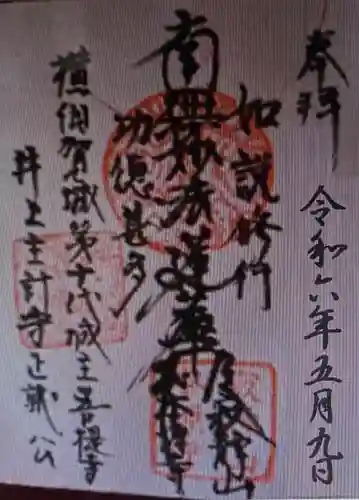 奉拝
令和六年五月九日
如説修行
南無妙法蓮華
功徳甚多
横須賀城第十代城主菩提寺
井上主計守正就公